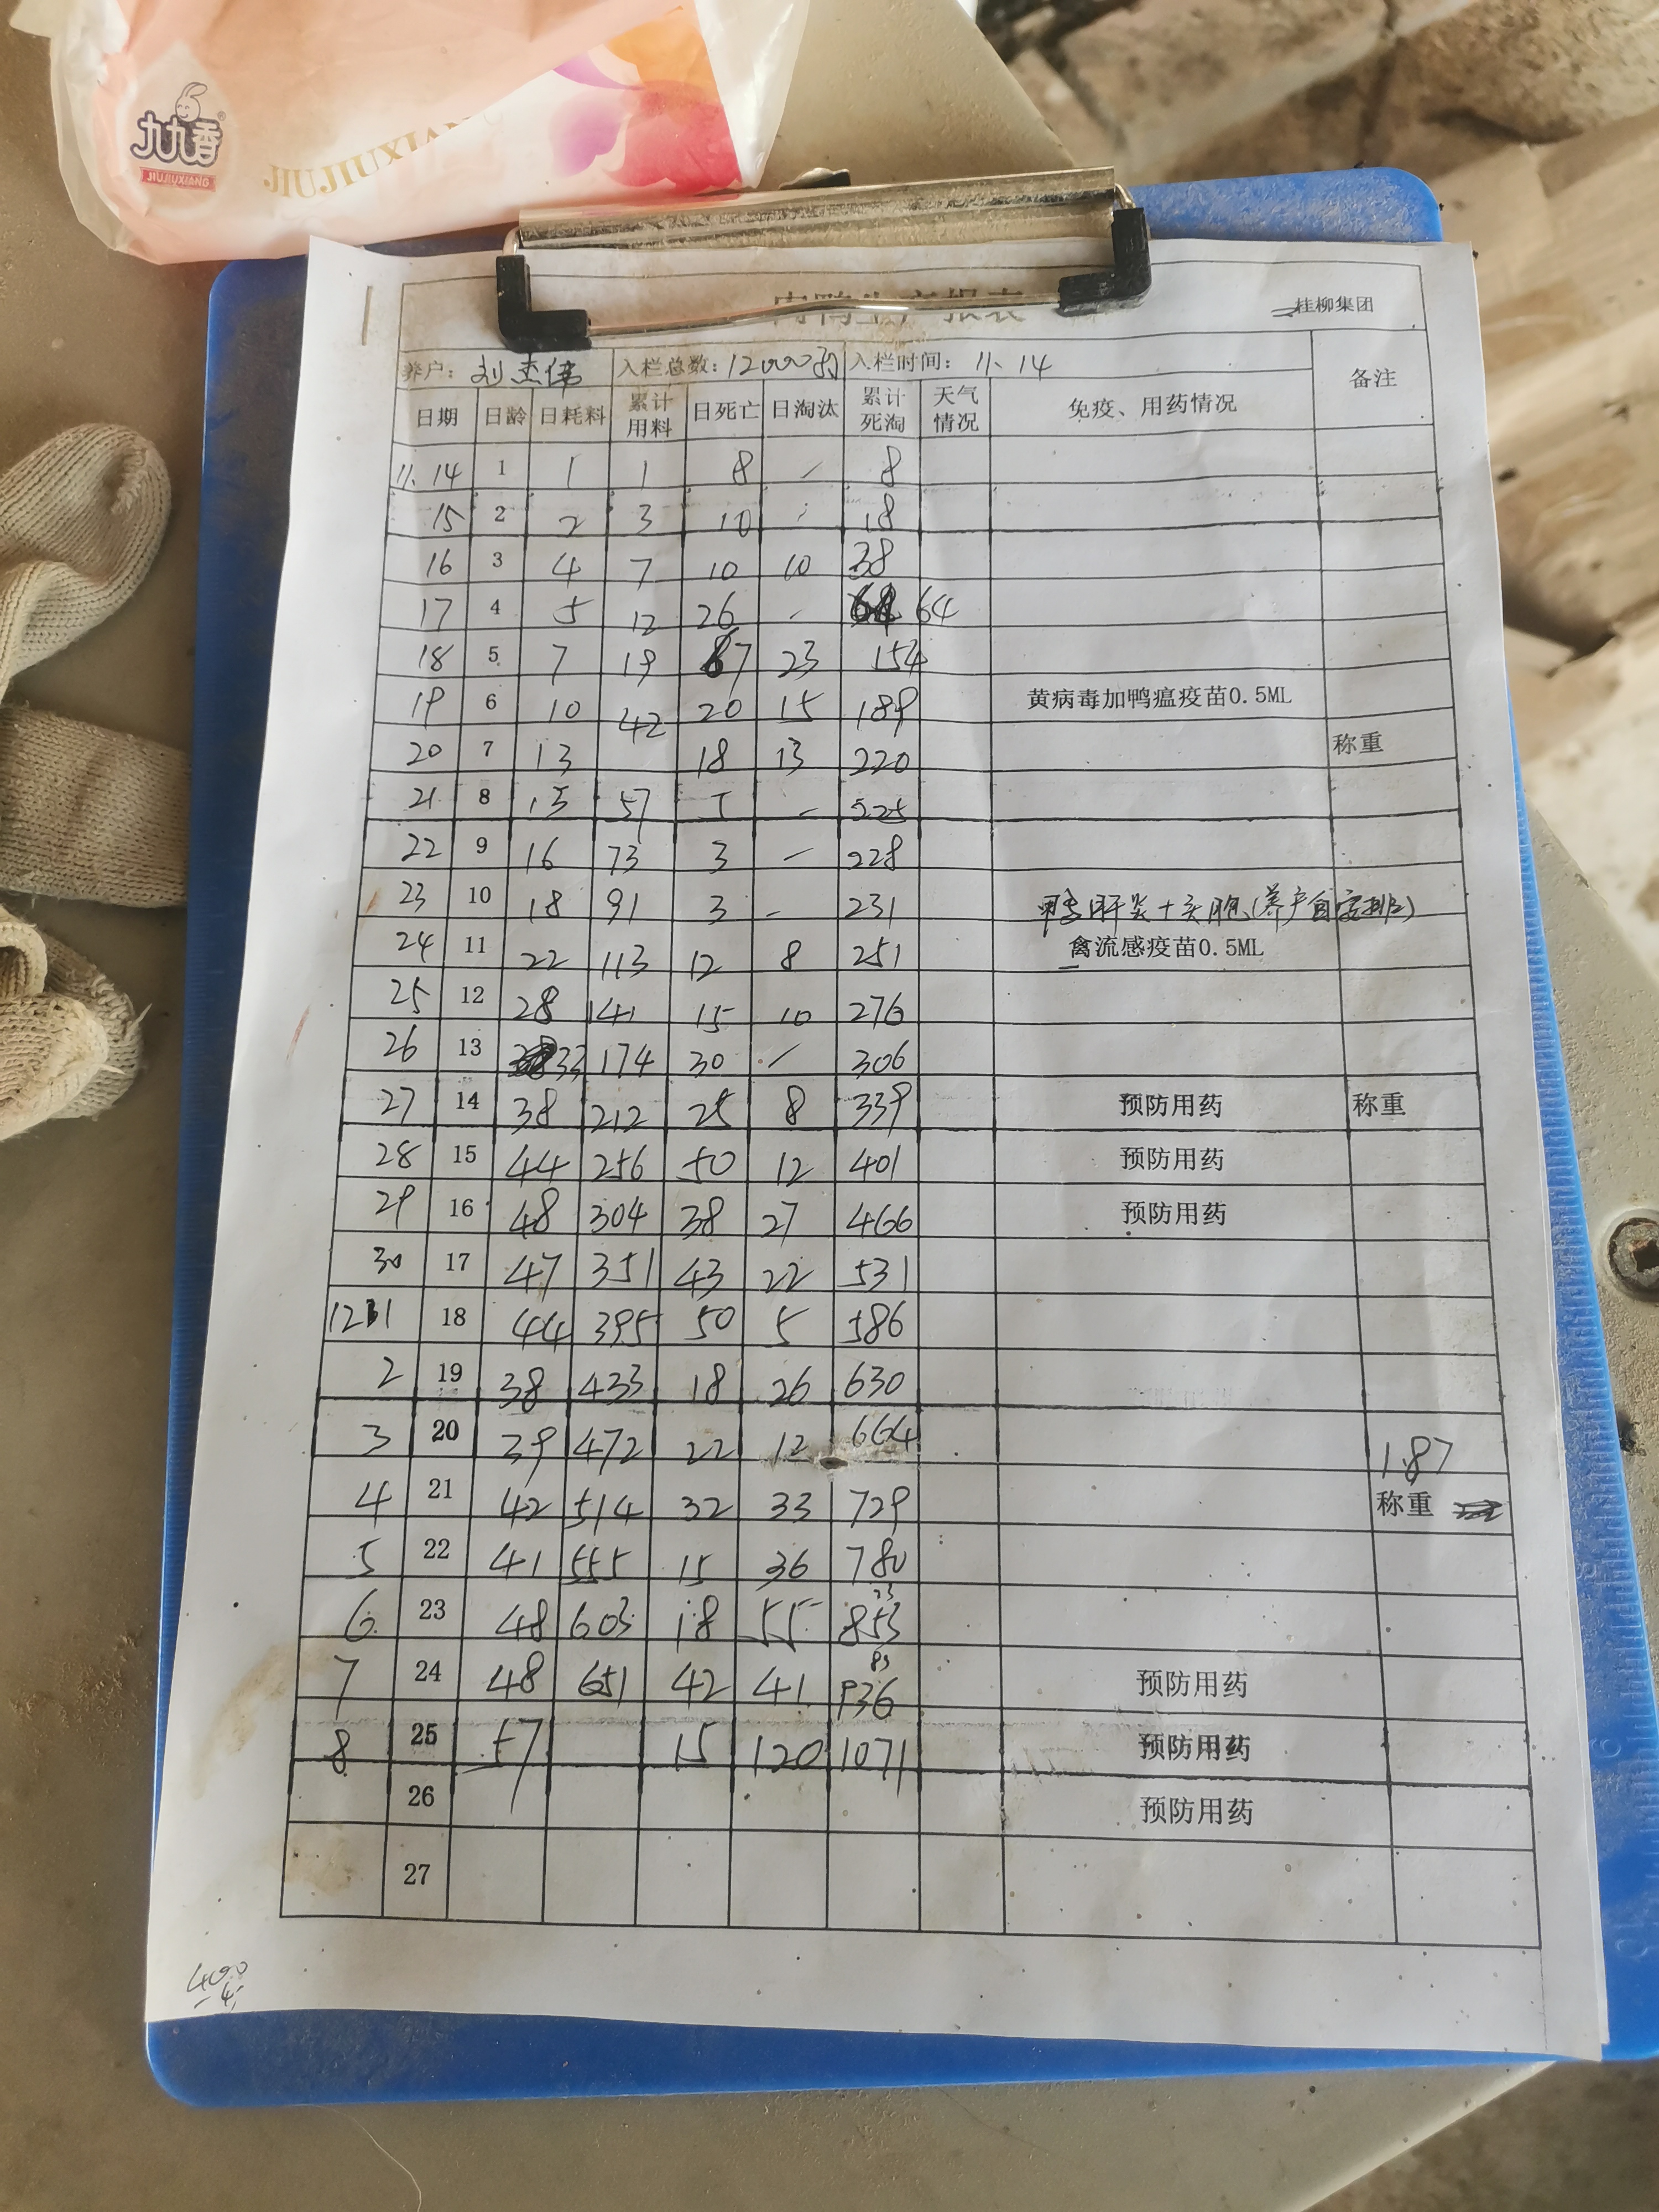 九九香
JIUJIUXIANG
JIUJIUXIAN
肉鸭生产报表
桂柳集团
养户: 刘杰伟 入栏总数: 12000羽 入栏时间: 11、14 备注
日期 日龄 日耗料 累计用料 日死亡 日淘汰 累计死淘 天气情况 免疫、用药情况
11. 14 1 1 1 8 - 8
15 2 2 3 10 - 18
16 3 4 7 10 10 38
17 4 5 12 26 - 64
18 5 7 19 67 23 154
19 6 10 42 20 15 189 黄病毒加鸭瘟疫苗0.5ML
20 7 13 18 13 220 称重
21 8 15 57 5 - 225
22 9 16 73 3 - 228
23 10 18 91 3 - 231 鸭肝炎+头胞(养户自安排)
24 11 22 113 12 8 251 禽流感疫苗0.5ML
25 12 28 141 15 10 276
26 13 33 174 30 - 306
27 14 38 212 25 8 339 预防用药 称重
28 15 44 256 50 12 401 预防用药
29 16 48 304 38 27 466 预防用药
30 17 47 351 43 22 531
12 1 18 44 395 50 5 586
2 19 38 433 18 26 630
3 20 39 472 22 12 664 1.87
4 21 42 514 32 33 729 称重
5 22 41 555 15 36 780
6 23 48 603 18 55 853
7 24 48 651 42 41 936 预防用药
8 25 57 15 120 1071 预防用药
26 预防用药
27